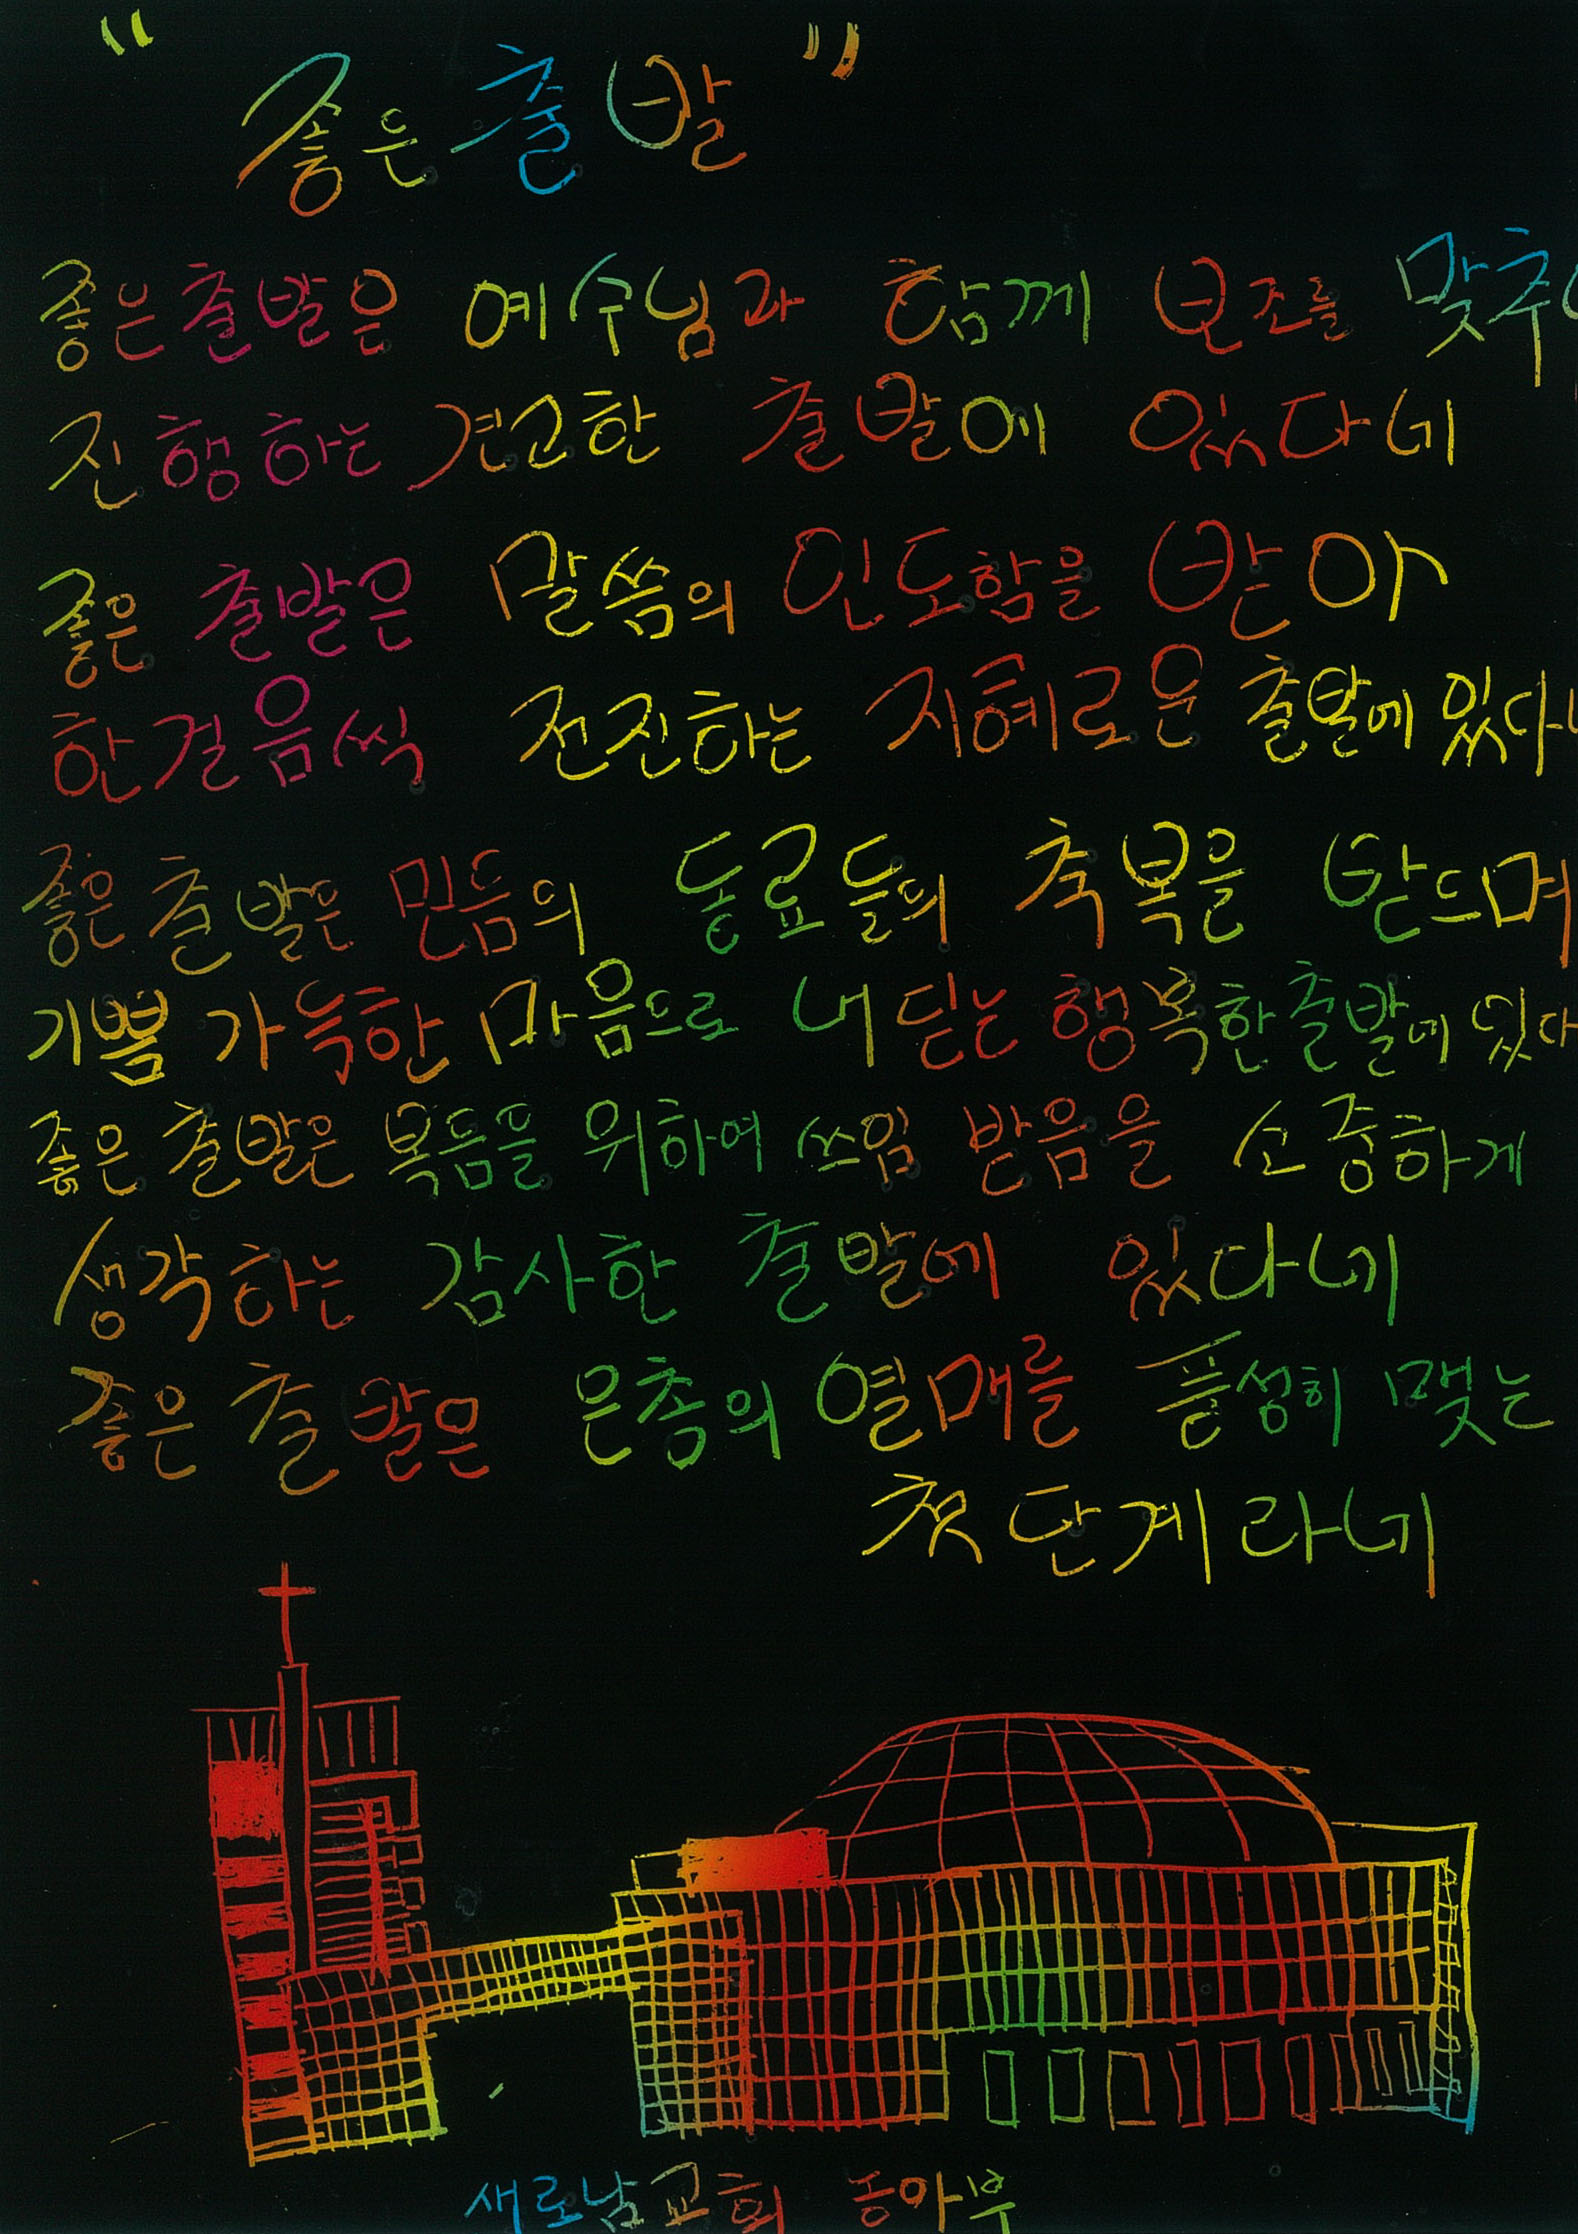 "좋은 출발"
좋은 출발은 예수님과 함께 보조를 맞추
진행하는 견고한 출발에 있다네
좋은 출발은 말씀의 인도함을 받아
한걸음씩 전진하는 지혜로운 출발에 있다
좋은 출발은 믿음의 동료들의 축복을 받으며
기쁨 가득한 마음으로 내딛는 행복한 출발에 있다
좋은 출발은 복음을 위하여 쓰임 받음을 소중하게
생각하는 감사한 출발에 있다네
좋은 출발은 은총의 열매를 풍성히 맺는
첫 단계라네
새로남교회 농아부